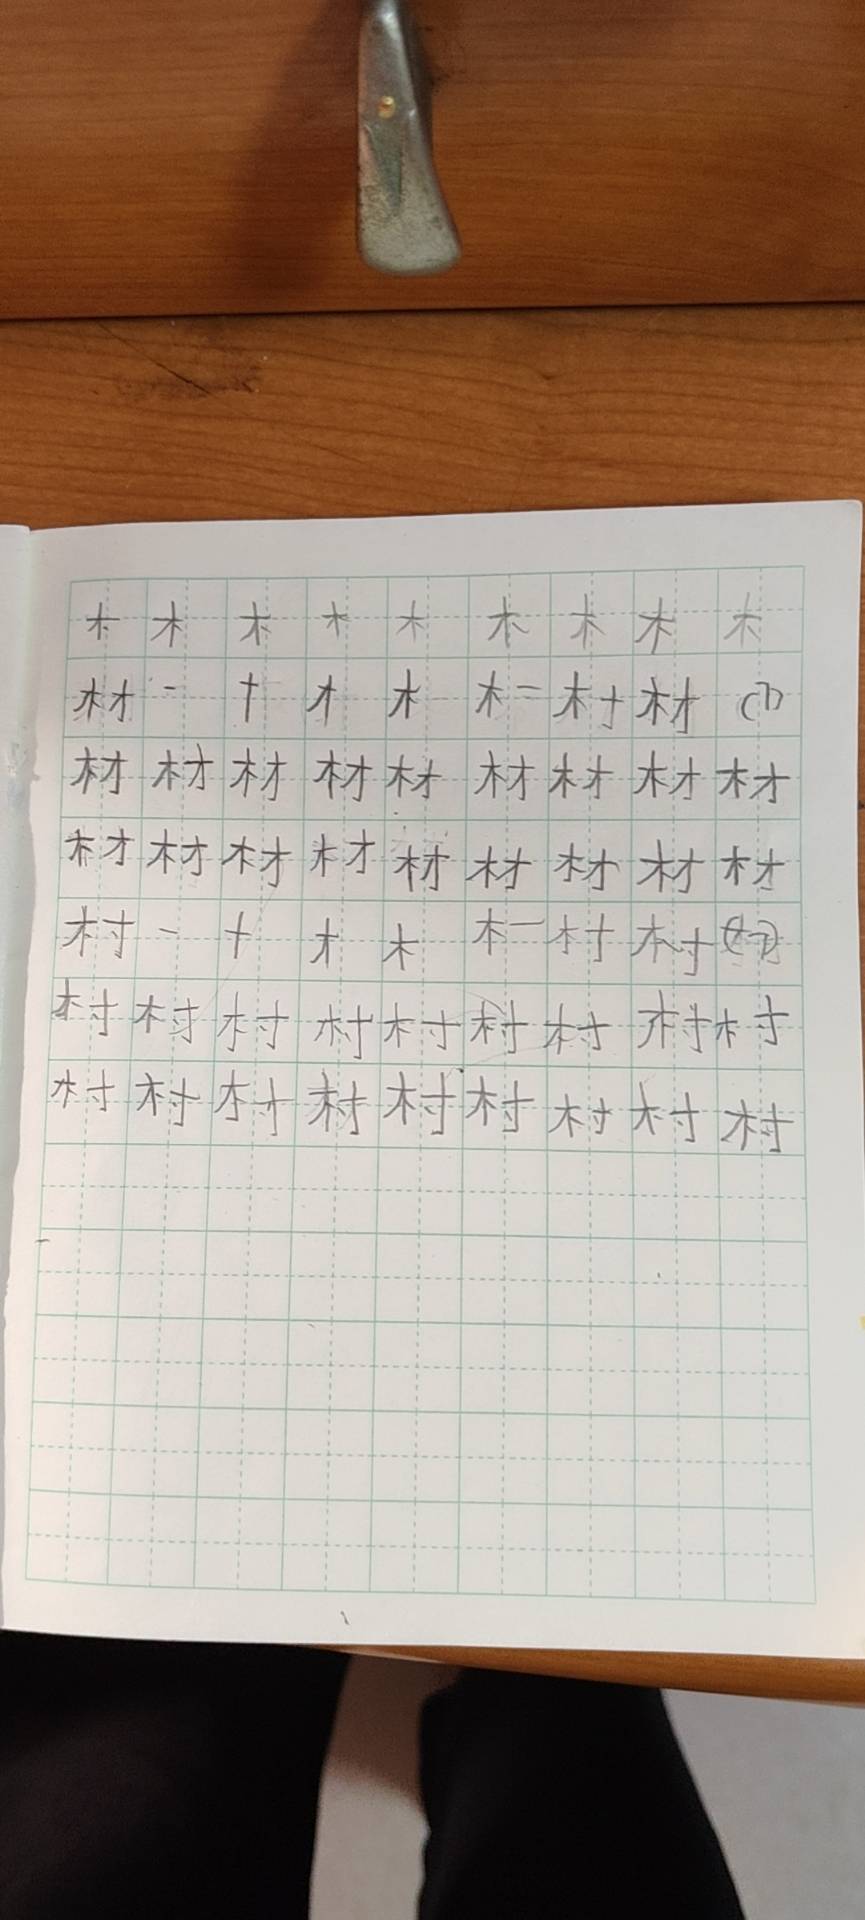 木 木 木 木 木 木 木 木 木
材 一 十 才 木 木一 村 材 (1)
材 材 材 材 材 材 材 材 材
材 材 材 材 材 材 材 材 材
村 一 十 才 木 木一 村 村
村 村 村 村 村 村 村 村 村
村 村 村 村 村 村 村 村 村